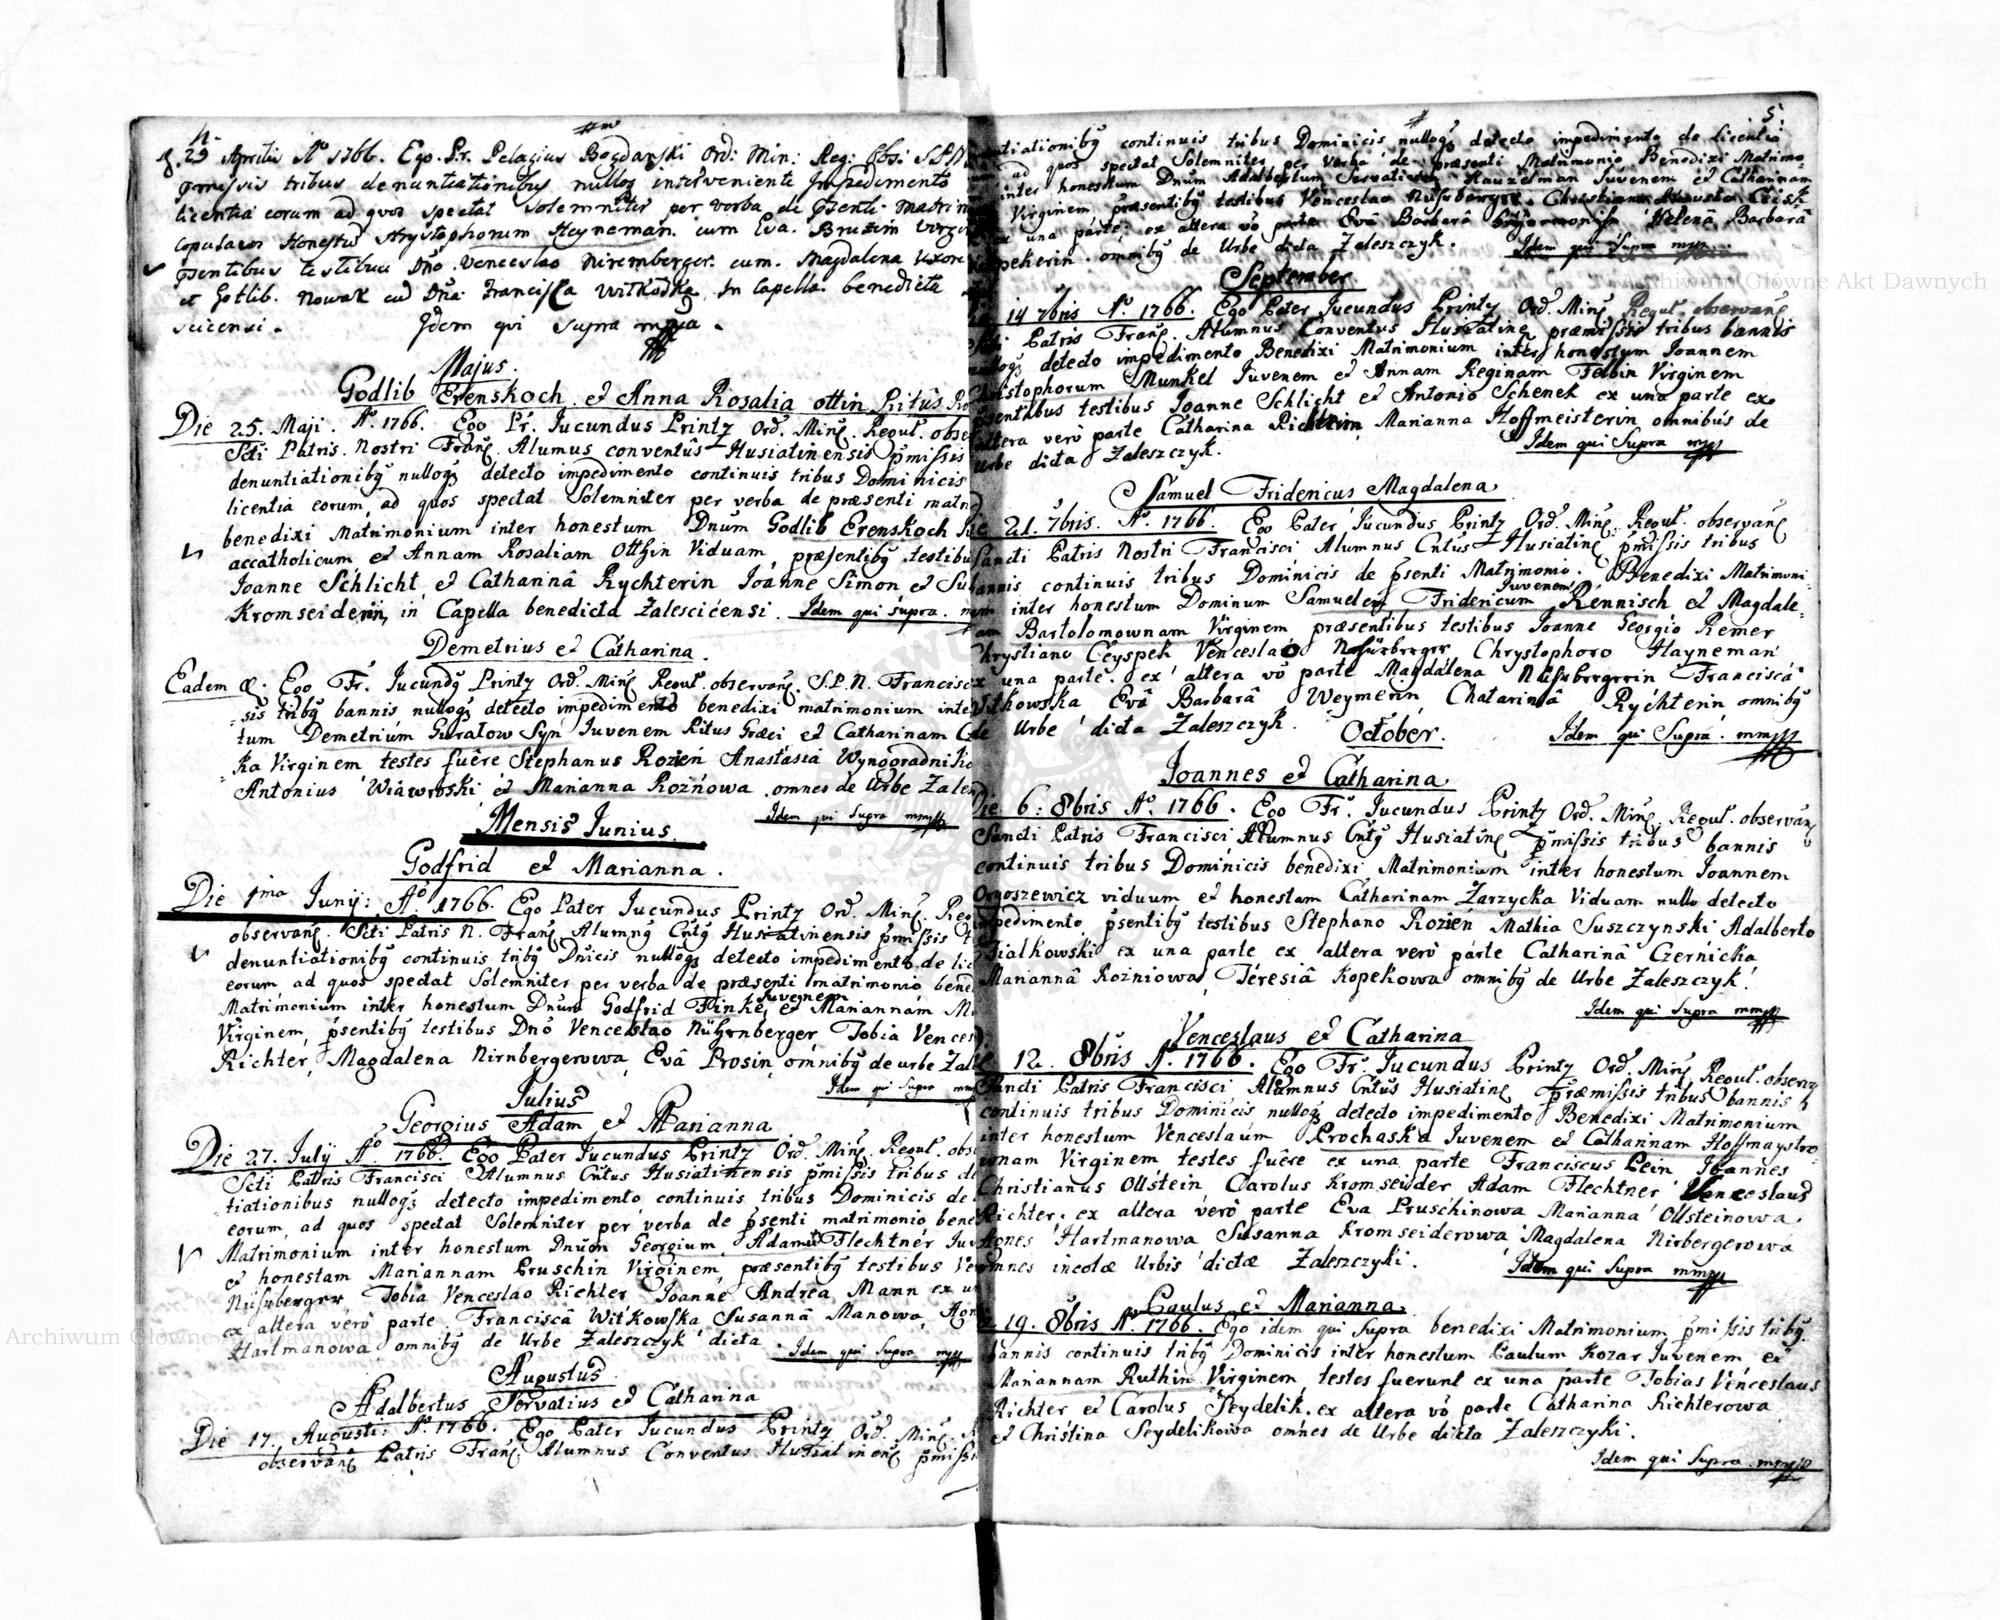 4.
29 Aprilis Aº 1766. Ego. P.r. Pelagius Bogdański Ord: Min: Reg: Obsi S.P.N
pmissis tribus denuntiationibus nulloq interveniente Impedimento
licentia eorum ad quos spectat Solemniter per verba de psenti matrim
copulavi Honestũ Hrystophorum Heyneman. cum Eva. Bruzin virgi
psentibus testibus Dño. Venceslao Niremberger. cum. Magdalena uxore
et Gotlib. Nowak cũ Dña Francisca Witkodka, In Capella. benedicta
scicensi. Idem qui supra mppa.
Majus.
Godlib Erenskoch. et Anna Rosalia ottin Ritûs Ro
Die 25. Maji. Aº. 1766. Ego Pr. Iucundus Printz Ord. Minȩ. Regul. obse
Scti Patris. Nostri Franȩ. Alumus conventûs Husiatinensis pmissis
denuntiationibꝰ nulloqȝ detecto impedimento continuis tribus Dominicis
licentia eorum, ad quos spectat Solemniter per verba de præsenti matri
benedixi Matrimonium inter honestum Dnũm Godlib Erenskoch
accatholicum, et Annam Rosaliam Ottȷin Viduam, præsentibꝰ testibu
Ioanne Schlicht, et Catharinâ Rychterin Ioanne Simon, et Su
Kromseiderin, in Capella benedicta Zalescicensi. Idem qui supra.
Demetrius et Catharina.
Eadem æ. Ego Fr. Iucundꝰ Printz Ord. Minȩ Regul. observanȩ. S.P.N. Francisc
sis tribꝰ bannis nulloqȝ detecto impedimento benedixi matrimonium inte
tum Demetrium Guratow Syn Iuvenem Ritus Græci et Catharinam
ka Virginem testes fuêre Stephanus Rozień Anastasia Wynogradnik
Antonius Wiáwroski et Marianna Rożnowa. omnes de Urbe Zalen
Idem qui Supra mmpp
Mensis Iunius.
Godfrid et Marianna.
Die 1ma Junij: Aº. 1766. Ego Pater Iucundus Printz Ord. Minȩ. Reg
observanȩ. Scti Patris N. Franȩ Alumnꝰ Cntꝰ Husiatinensis pmissis
denuntiationibꝰ continuis tribꝰ Dnicis nulloqȝ detecto impedimento de lic
eorum, ad quos spectat Solemniter per verba de præsenti matrimonio bene
Matrimonium inter honestum Dnum Godfrid Finke, Iuvenem et Mariannam M
Virginem, psentibꝰ testibus Dnõ Venceslao Nürnberger, Tobia Vences
Richter, Magdalena Nirnbergerowa, Evâ Prosin, omnibꝰ de urbe Zal
Idem qui Supra mm
Iulius
Georgius Adam et Marianna
Die 27. July Aº 1766. Ego Pater Iucundus Printz Ord. Minȩ. Regul. obs
Scti Patris Francisci Alumnus Cntus Husiatinensis pmissis tribus de
tiationibus nulloqȝ detecto impedimento, continuis tribus Dominicis de
eorum, ad quos spectat Solemniter per verba de psenti matrimonio bene
Matrimonium inter honestum Dnum Georgium, Adamũ Flechtner Iuv
et honestam Mariannam Pruschin Virginem, præsentibꝰ testibus Ve
Nürberger, Tobia Venceslao Richter Ioanne Andrea Mann ex u
ex altera verò parte. Franciscâ Witkowska Susannâ Manowa, Agn
Hartmanowa omnibꝰ de Urbe Zaleszczyk dicta. Idem qui Supra mpp
Augustus
Adalbertus Servatius et Catharina
Die 17. Augusti. Aº. 1766. Ego Pater Iucundus Printz Ord. Minȩ.
observanȩ Patris Franȩ. Alumnus Conventus Husiatinenȩ pmissi
5.
tiationibꝰ continuis tribus Dominicis, nulloqȝ detecto impedimento de licentia
ad quos spectat Solemniter per Verba de præsenti Matrimonio Benedixi Matrimo
inter honestum Dnũm Adalbertum Servatium Hauzelman Iuvenem et Catharinam
Virginem præsentibꝰ testibus Venceslao
una parte: ex altera vò parte Evâ Barbarâ Helenâ Barbarâ
pekerin. omnibꝰ de Urbe dicta Zaleszczyk. Idem qui Supra mpp
September
14 7bris Aº. 1766. Ego Pater Iucundus Printz Ord. Minȩ Regul. observanȩ
Patris Franȩ. Alumnus Conventus Husiatinȩ præmissis tribus bannis
nulloqȝ detecto impedimento Benedixi Matrimonium inter honestum Ioannem
Christophorum Munkel Iuvenem et Annam Reginam Felbin Virginem
psentibus testibus Ioanne Schlicht et Antonio Schenek ex una parte ex
altera verò parte Catharina Richterin, Marianna Hoffmeisterin omnibus de
Urbe dicta Zaleszczyk. Idem qui Supra mpp
Samuel Fridericus Magdalena
21. 7bris. Aº. 1766. Ego Pater Iucundus Printz Ord. Minȩ. Regul. observanȩ
Sancti Patris Nostri Francisci Alumnus Cntus Husiatinȩ pmissis tribus
annis continuis tribus Dominicis de psenti Matrimonio. Benedixi Matrimoni
inter honestum Dominum Samuelem Fridericum Iuvenem Rennisch et Magdale
am Bartolomownam Virginem, præsentibus testibus Ioanne Georgio Remer
Chrystiano Ceyspek Venceslao Chrystophoro Hayneman
ex una parte. ex altera vò parte Magdalena Franciscâ
Witkowska Evâ Barbarâ Weymerin, Chatarinâ Rychterin omnibꝰ
de Urbe dicta Zaleszczyk. Idem qui Supra. mmpp
October.
Ioannes et Catharina
Die 6: 8bris Aº. 1766. Ego Fr. Iucundus Printz Ord. Minȩ. Regul. observanȩ
Sancti Patris Francisci Alumnus Cntꝰ Husiatinȩ pmissis tribus bannis
continuis tribus Dominicis benedixi Matrimonium inter honestum Ioannem
Orgoszewicz viduum et honestam Catharinam Zarzycka Viduam nullo detecto
impedimento, psentibꝰ testibus Stephano Rozień Mathia Suszczynski Adalberto
Fialkowski ex una parte ex altera verò parte Catharinâ Czernicka
Mariannâ Rożniowa, Téresiâ Kopekowa omnibꝰ de Urbe Zaleszczyk.
Idem qui Supra mmpp
Venceslaus et Catharina
12. 8bris Aº. 1766. Ego Fr. Iucundus Printz Ord. Minȩ Regul. observ
Sancti Patris Francisci Alumnus Cntus Husiatinȩ præmissis tribus bannis
continuis tribus Dominicis nulloqȝ detecto impedimento Benedixi Matrimonium
inter honestum Venceslaum Prochaska Iuvenem et Catharinam Hoffmaystro-
wnam Virginem testes fuêre ex una parte Franciscus Pein Ioannes
Christianus Ollstein Carolus Kromseider Adam Flechtner Venceslaus
Richter. ex altera verò parte Eva Pruschinowa Marianna Ollsteinowa.
Agnes Hartmanowa Susanna Kromseiderowa Magdalena Nirbergerowa
omnes incolæ Urbis dictæ Zaleszczyki. Idem qui Supra mmpp
Paulus et Marianna.
19. 8bris Aº. 1766. Ego idem qui Supra benedixi Matrimonium, pmissis tribꝰ
bannis continuis tribꝰ Dominicis inter honestum Paulum Kozar Iuvenem et
Mariannam Ruthin Virginem, testes fuerunt ex una parte Tobias Venceslaus
Richter et Carolus Seydelik. ex altera vò parte Catharina Richterowa
et Christina Seydelikowa omnes de Urbe dicta Zaleszczyki.
Idem qui Supra. mmpp
Archiwum Główne Akt Dawnych
Archiwum Główne Akt Dawnych